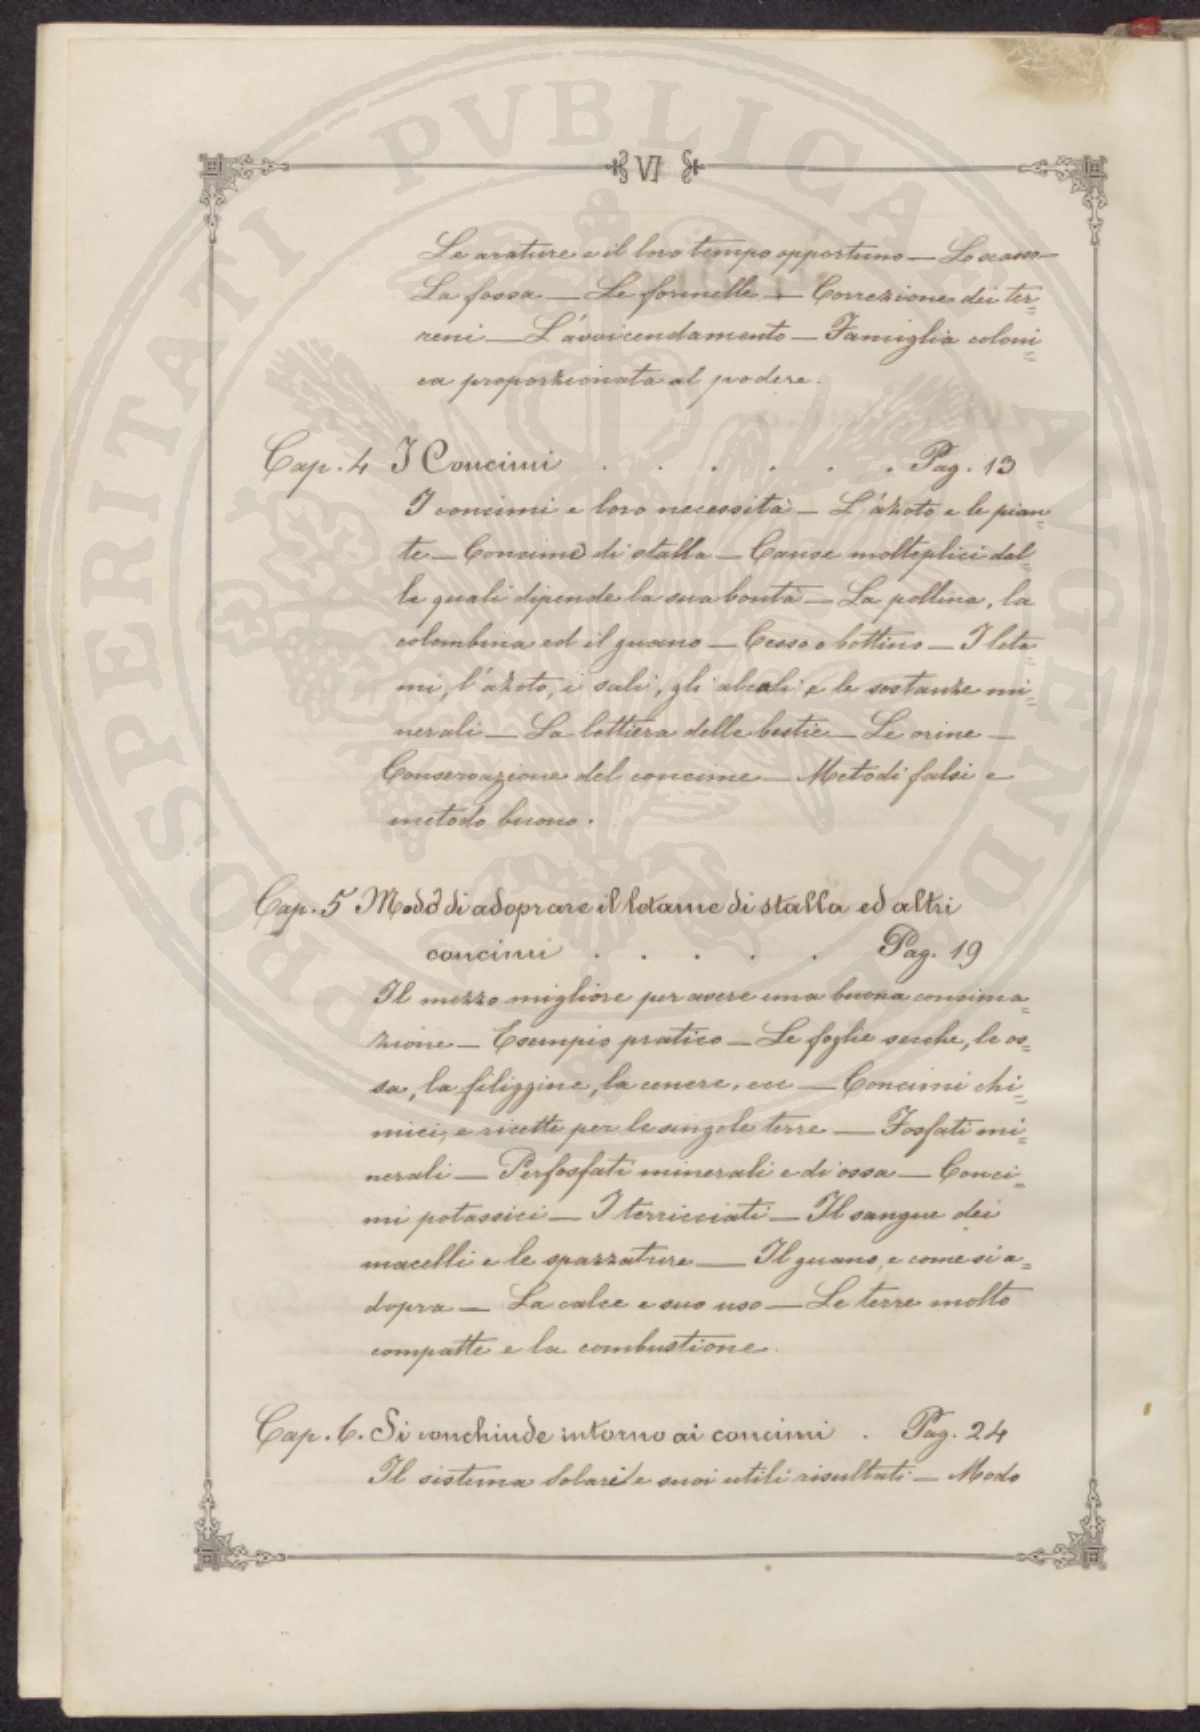 VI
Le arature e il loro tempo opportuno — Lo scasso —
La fossa — Le formelle — Correzione dei ter=
reni — L'avvicendamento — Famiglia coloni=
ca proporzionata al podere.
Cap. 4 I Concimi . . . . . . Pag. 13
I concimi e loro necessità — L'azoto e le pian=
te — Concime di stalla — Cause molteplici dal=
le quali dipende la sua bontà — La pollina, la
colombina ed il guano — Cesso o bottino — I leta=
mi, l'azoto, i sali, gli alcali e le sostanze mi=
nerali — La lettiera delle bestie — Le orine —
Conservazione del concime — Metodi falsi e
metodo buono.
Cap. 5 Modo di adoprare il letame di stalla ed altri
concimi . . . . . Pag. 19
Il mezzo migliore per avere una buona concima=
zione — Esempio pratico — Le foglie secche, le os=
sa, la filiggine, la cenere, ecc — Concimi chi=
mici, e ricette per le singole terre — Fosfati mi=
nerali — Perfosfati minerali e di ossa — Conci=
mi potassici — I terricciati — Il sangue dei
macelli e le spazzature — Il guano, e come si a=
dopra — La calce e suo uso — Le terre molto
compatte e la combustione.
Cap. 6. Si conchiude intorno ai concimi . Pag. 24
Il sistema Solari e suoi utili risultati — Modo
PVBLICAE AVGENDAE PROSPERITATI